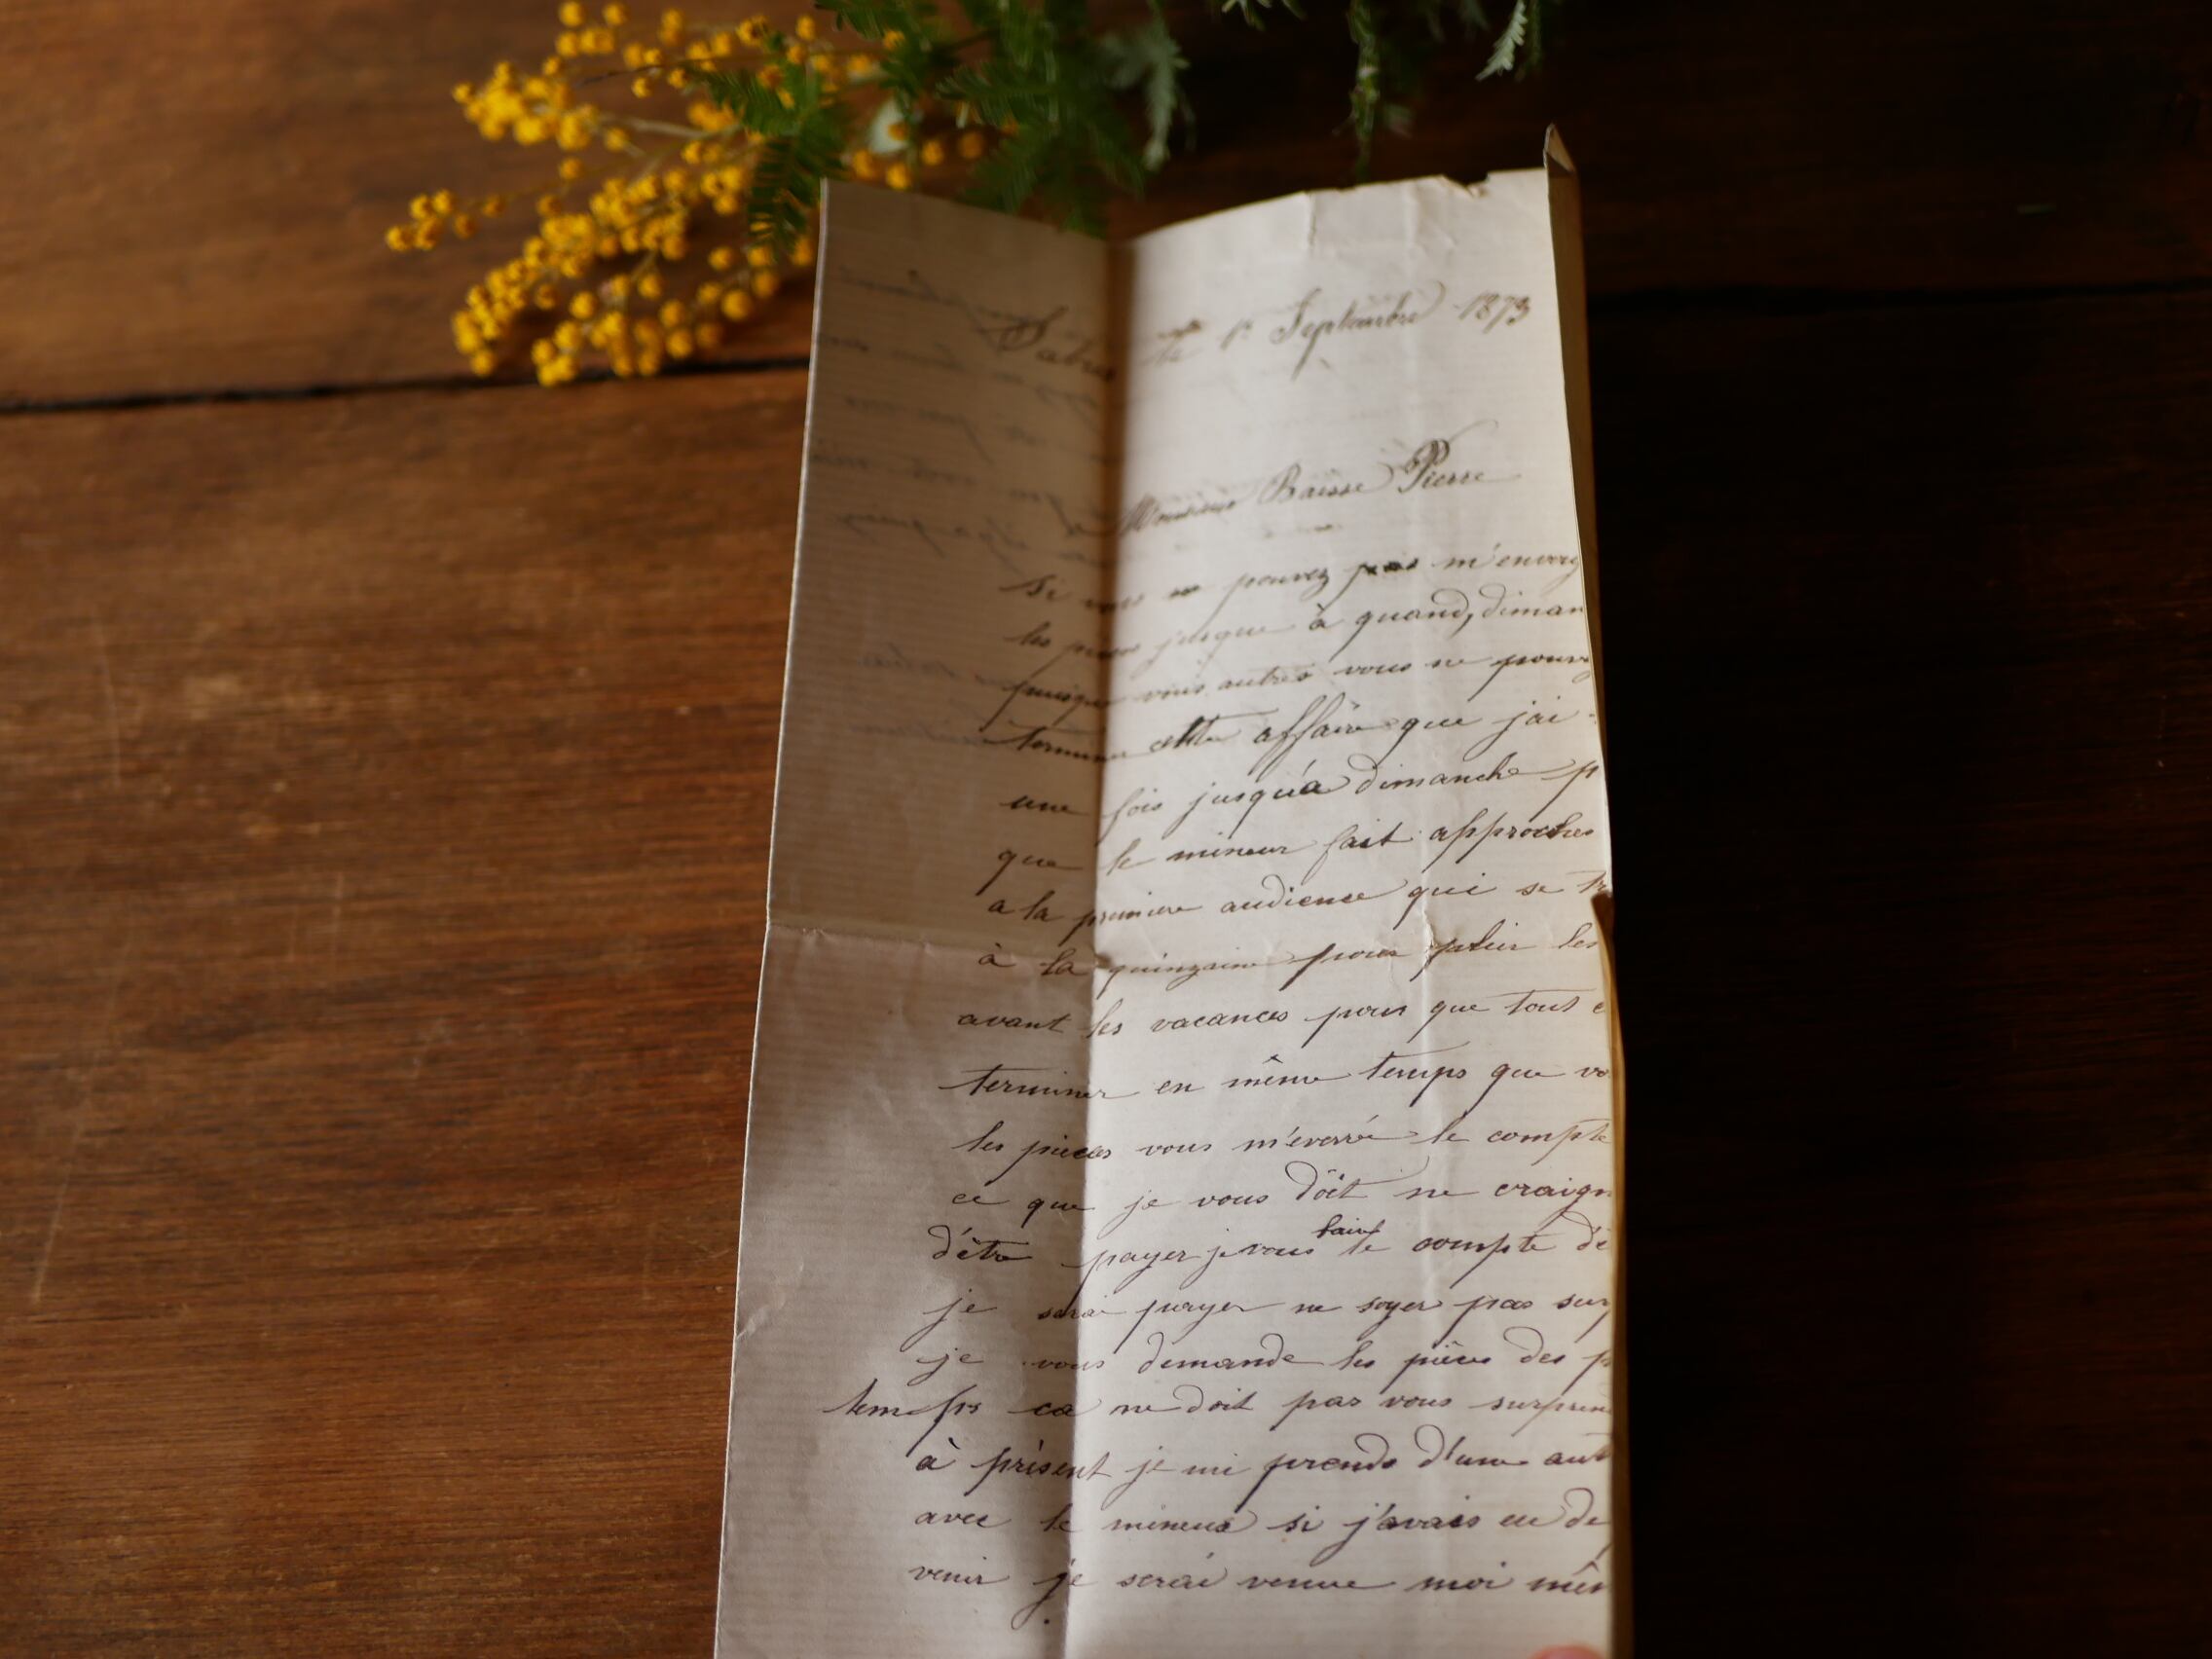 Sabres le 1er Septembre 1873
Monsieur Baisse Pierre
Si vous ne pouvez pas m'envoy
les pièces jusque à quand, diman
puisque vous autres vous ne pouve
terminer cette affaire que j'ai
une fois jusqu'a dimanche p
que le mineur fait approcher
a la premiere audience qui se
à la quinzaine pour les
avant les vacances pour que tout
terminer en même temps que vo
les pieces vous m'everré le compte
ce que je vous doit ne craign
d'être payer je vous faire le compte de
je serai payer ne soyer pas surp
je vous demande les pièces des p
temps ca ne doit pas vous surpren
à présent je mi prends d'une aut
avec le mineur si j'avais eu de
venir je serai venue moi mêm